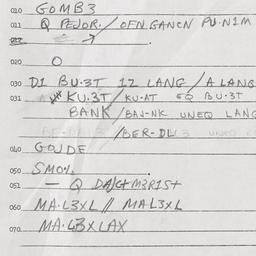 010 GOMB3
011 Q PEJOR. / OFN.GANCN PU.N1M
012
020 O
030 D1 BU.3T 12 LANG / A LANG
031 KU.3T / KU.AT EQ BU.3T
BANK / BAN-NK UNEQ LANG
/BER-DL
040 GOJDE
050 SMO%
051 — Q
060 MA.L3XL // MAL3XL
070 MA.L3XLAX